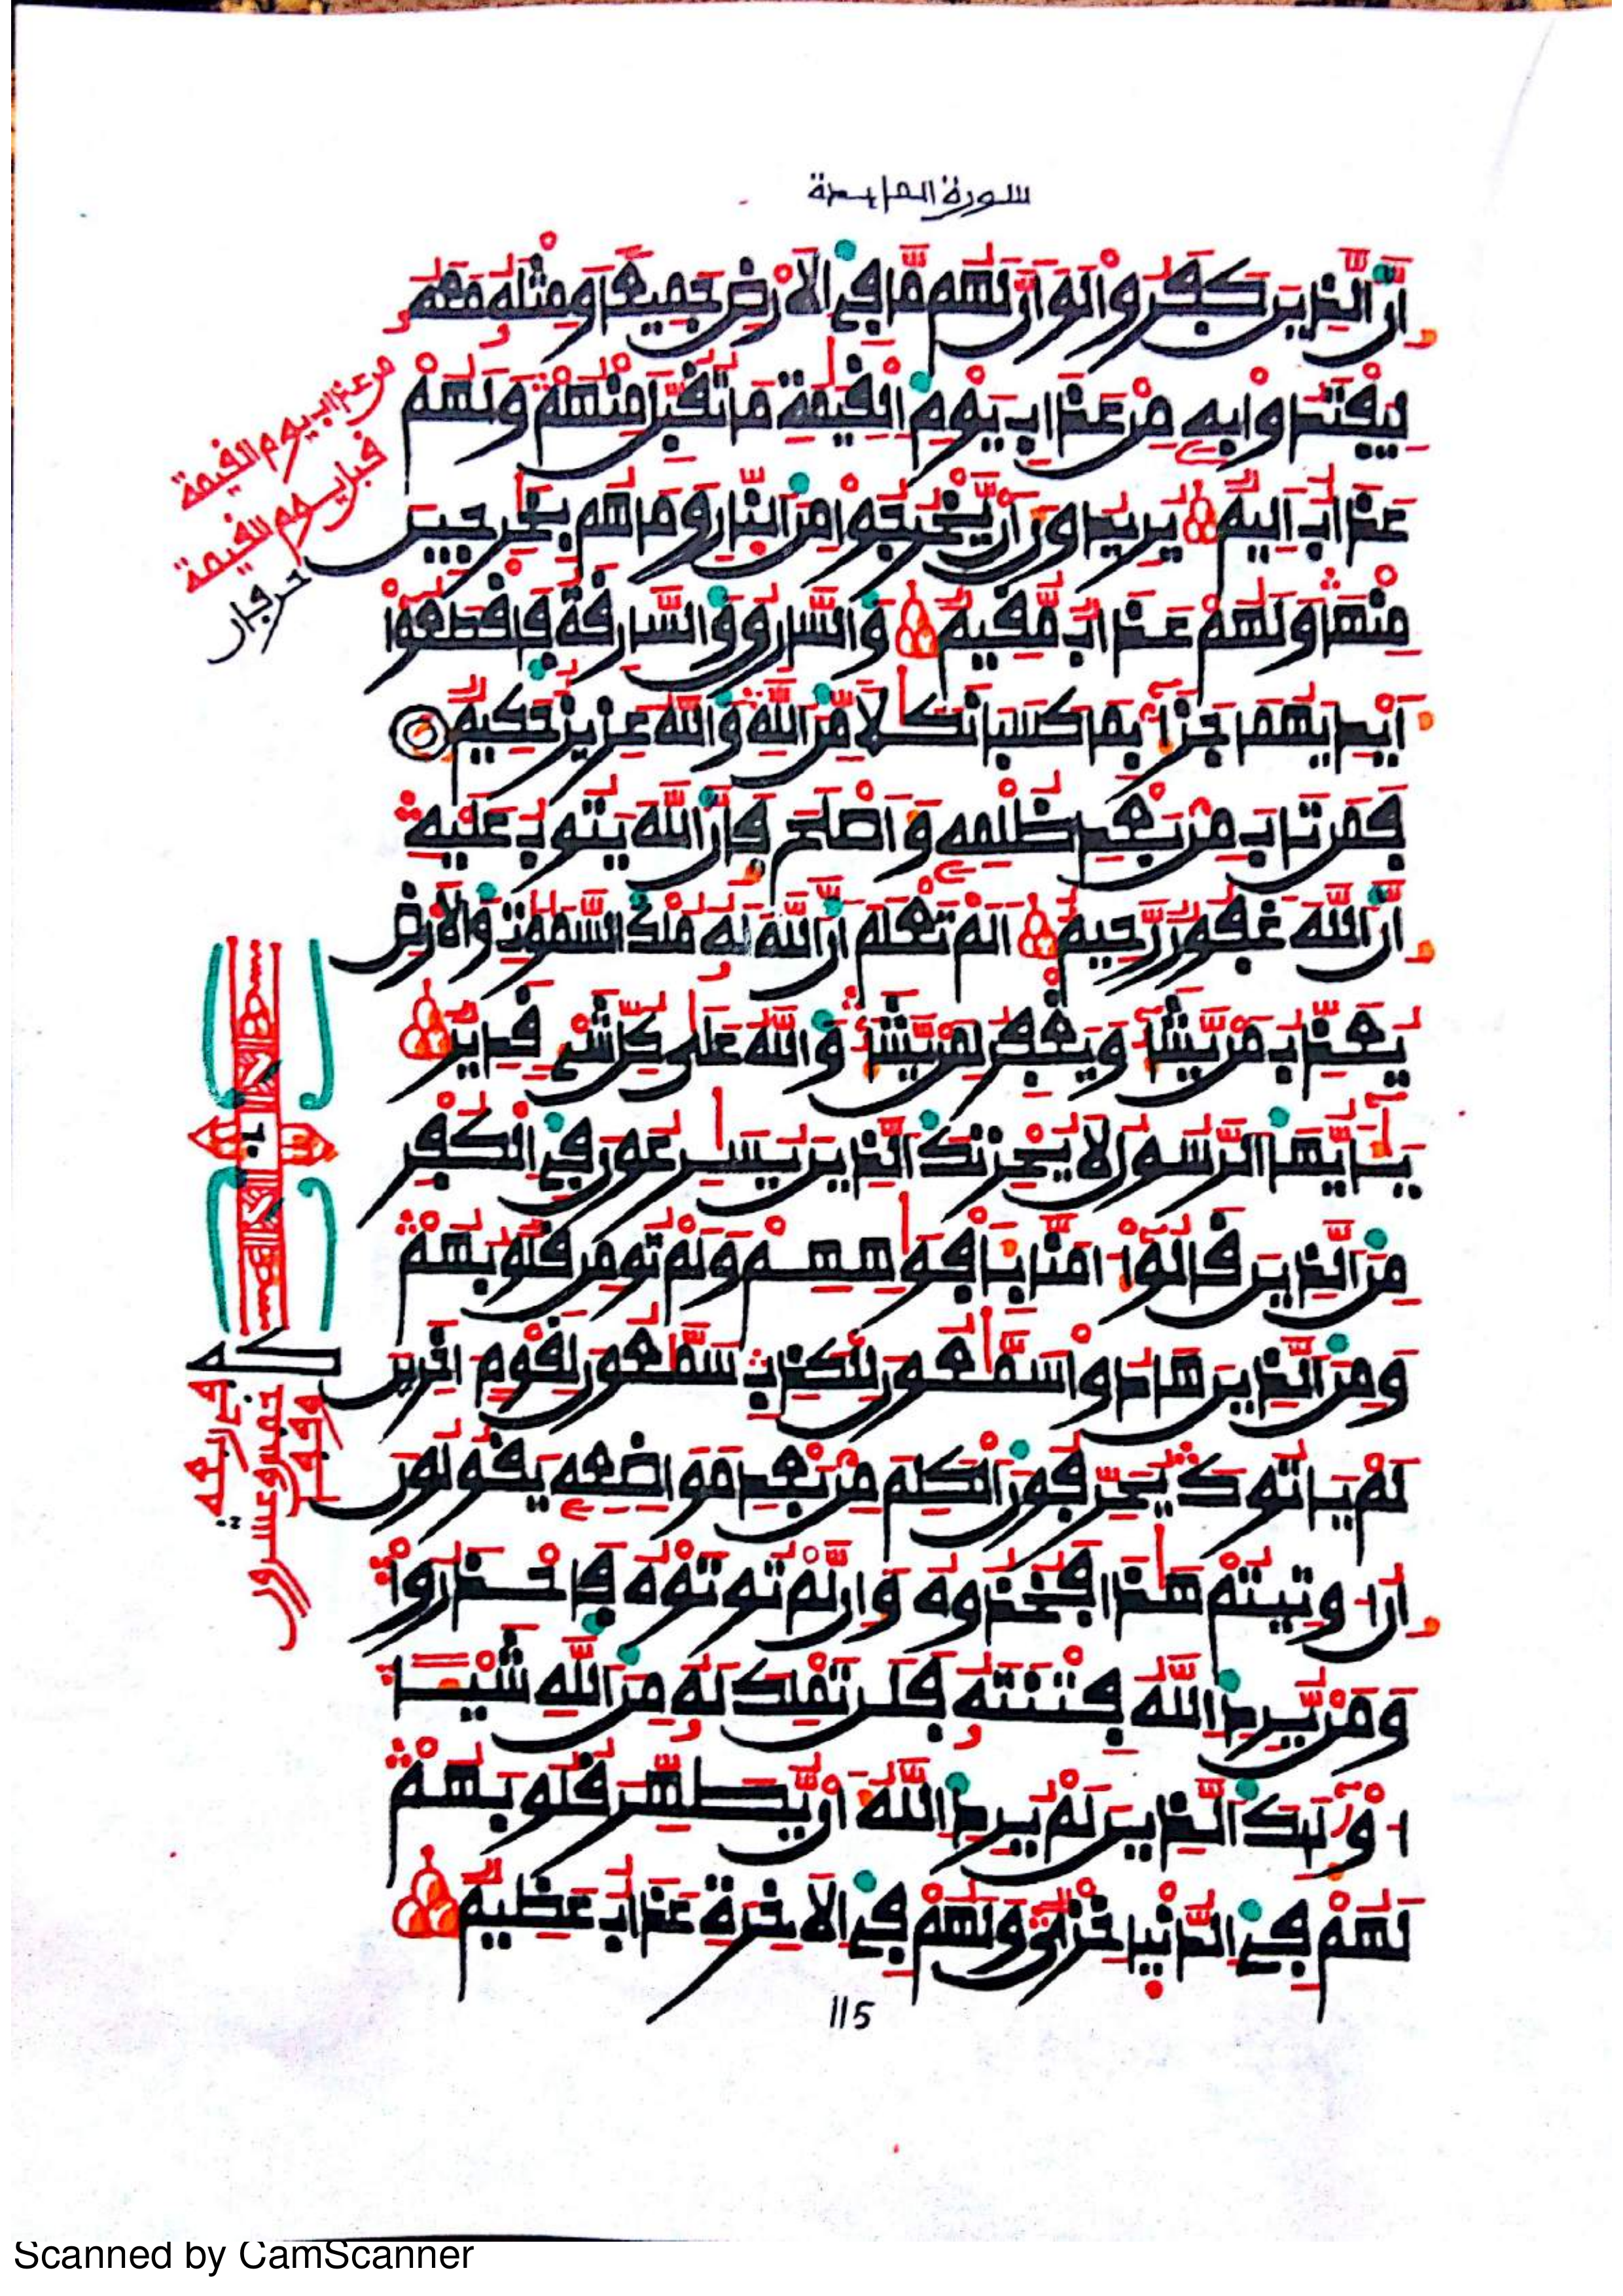 سورة المايدة
إِنَّ الذِينَ كَفَرُواْ لَوَ اَنَّ لَهُم مَّا فِي الَارْضِ جَمِيعًا وَمِثْلَهُ مَعَهُ
لِيَفْتَدُواْ بِهِ مِنْ عَذَابِ يَوْمِ الْقِيَٰمَةِ مَا تُقُبِّلَ مِنْهُمْ وَلَهُمْ
عَذَابٌ اَلِيمٌ يُرِيدُونَ أَنْ يَّخْرُجُواْ مِنَ النّارِ وَمَا هُم بِخَٰرِجِينَ
مِنْهَا وَلَهُمْ عَذَابٌ مُّقِيمٌ وَالسَّارِقُ وَالسَّارِقَةُ فَاقْطَعُواْ
أَيْدِيَهُمَا جَزَآءً بِمَا كَسَبَا نَكَٰلًا مِّنَ اللَّهِ وَاللَّهُ عَزِيزٌ حَكِيمٌ
فَمَن تَابَ مِنْ بَعْدِ ظُلْمِهِ وَأَصْلَحَ فَإِنَّ اللَّهَ يَتُوبُ عَلَيْهِ
إِنَّ اللَّهَ غَفُورٌ رَّحِيمٌ اَلَمْ تَعْلَمَ اَنَّ اللَّهَ لَهُ مُلْكُ السَّمَٰوَٰتِ وَالَارْضِ
يُعَذِّبُ مَنْ يَّشَآءُ وَيَغْفِرُ لِمَنْ يَّشَآءُ وَاللَّهُ عَلَىٰ كُلِّ شَيْءٍ قَدِيرٌ
يَٰٓأَيُّهَا الرَّسُولُ لَا يُحْزِنكَ الذِينَ يُسَٰرِعُونَ فِي الْكُفْرِ
مِنَ الذِينَ قَالُوٓاْ ءَامَنَّا بِأَفْوَٰهِهِمْ وَلَمْ تُومِن قُلُوبُهُمْ
وَمِنَ الذِينَ هَادُواْ سَمَّٰعُونَ لِلْكَذِبِ سَمَّٰعُونَ لِقَوْمٍ اٰخَرِينَ
لَمْ يَاتُوكَ يُحَرِّفُونَ الْكَلِمَ مِنْ بَعْدِ مَوَاضِعِهِ يَقُولُونَ
إِنُ ا۟وتِيتُمْ هَٰذَا فَخُذُوهُ وَإِن لَّمْ تُوتَوْهُ فَاحْذَرُواْ
وَمَنْ يُّرِدِ اللَّهُ فِتْنَتَهُ فَلَن تَمْلِكَ لَهُ مِنَ اللَّهِ شَيْـًٔا
ا۟وْلَٰٓئِكَ الذِينَ لَمْ يُرِدِ اللَّهُ أَنْ يُّطَهِّرَ قُلُوبَهُمْ
لَهُمْ فِي الدُّنْيَا خِزْيٌ وَلَهُمْ فِي الَاخِرَةِ عَذَابٌ عَظِيمٌ
من عذاب يوم القيمة
115
Scanned by CamScanner